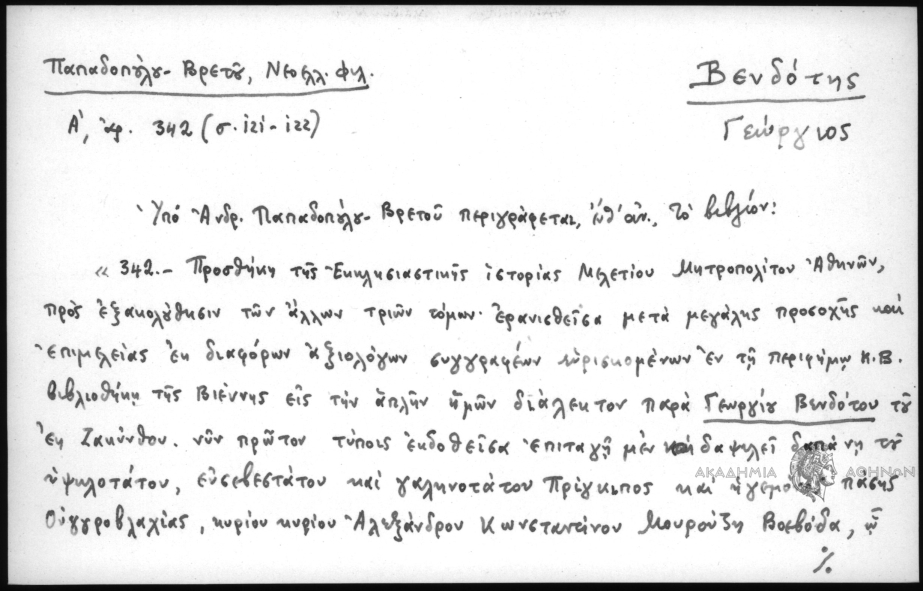 Παπαδοπούλου-Βρετοῦ, Νεοελλ. Φιλ.
Βενδότης
Α', ἀρ. 342 (σ. 121-122)
Γεώργιος
Ὑπό Ἀνδρ. Παπαδοπούλου-Βρετοῦ περιγράφεται, ἔνθ' ἀν., τὸ βιβλίον:
« 342.- Προσθήκη τῆς Ἐκκλησιαστικῆς ἱστορίας Μελετίου Μητροπολίτου Ἀθηνῶν,
πρὸς ἐξακολούθησιν τῶν ἄλλων τριῶν τόμων· ἐρανισθεῖσα μετὰ μεγάλης προσοχῆς καὶ
ἐπιμελείας ἐκ διαφόρων ἀξιολόγων συγγραφέων εὑρισκομένων ἐν τῇ περιφήμῳ Κ.Β.
βιβλιοθήκῃ τῆς Βιέννης εἰς τὴν ἁπλῆν ἡμῶν διάλεκτον παρὰ Γεωργίου Βενδότου τοῦ
ἐκ Ζακύνθου. νῦν πρῶτον τύποις ἐκδοθεῖσα ἐπιταγῇ μὲν καὶ δαψιλεῖ δαπάνῃ τοῦ
ὑψηλοτάτου, εὐσεβεστάτου καὶ γαληνοτάτου Πρίγκιπος καὶ ἡγεμόνος πάσης
Οὐγγροβλαχίας, κυρίου κυρίου Ἀλεξάνδρου Κωνσταντίνου Μουρούζη Βοεβόδα, ᾧ
%.
ΑΚΑΔΗΜΙΑ ΑΘΗΝΩΝ